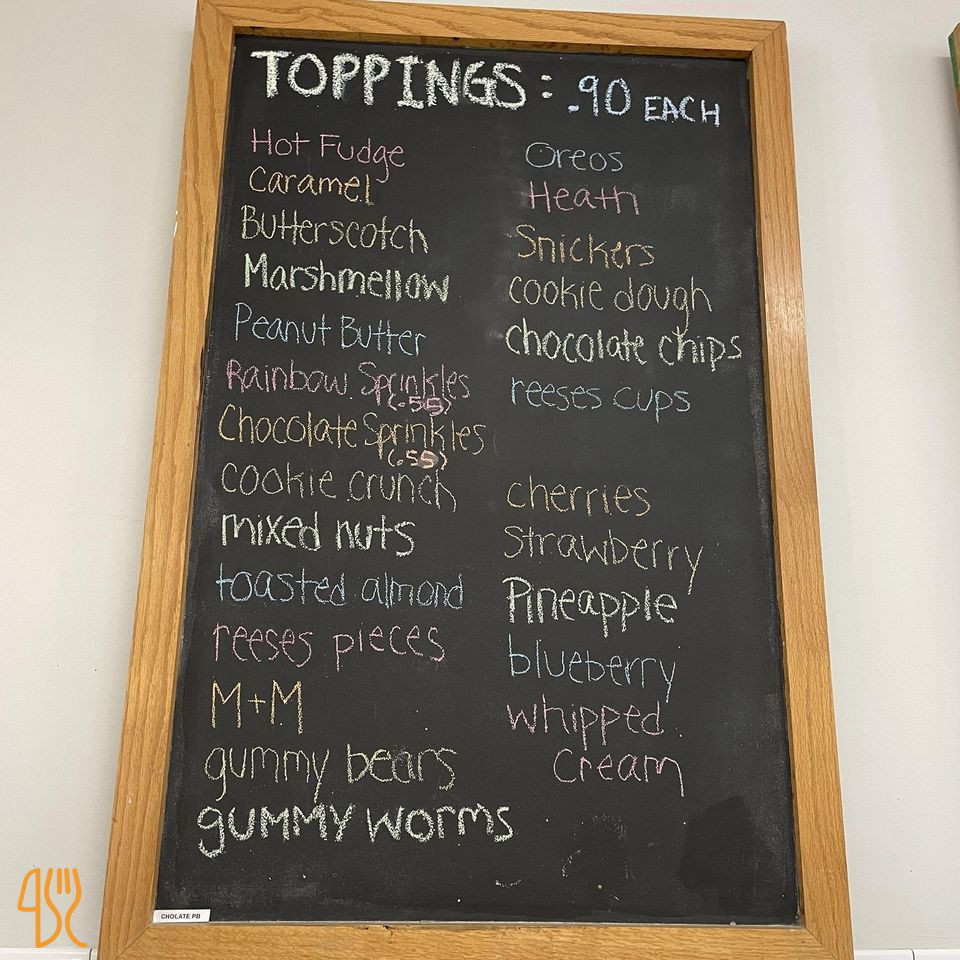 TOPPINGS: .90 EACH
Hot Fudge
Caramel
Butterscotch
Marshmellow
Peanut Butter
Rainbow Sprinkles
(.55)
Chocolate Sprinkles
(.55)
cookie crunch
mixed nuts
toasted almond
reeses pieces
M+M
gummy bears
gummy worms
Oreos
Heath
Snickers
cookie dough
chocolate chips
reeses cups
cherries
Strawberry
Pineapple
blueberry
whipped
cream
CHOLATE PB